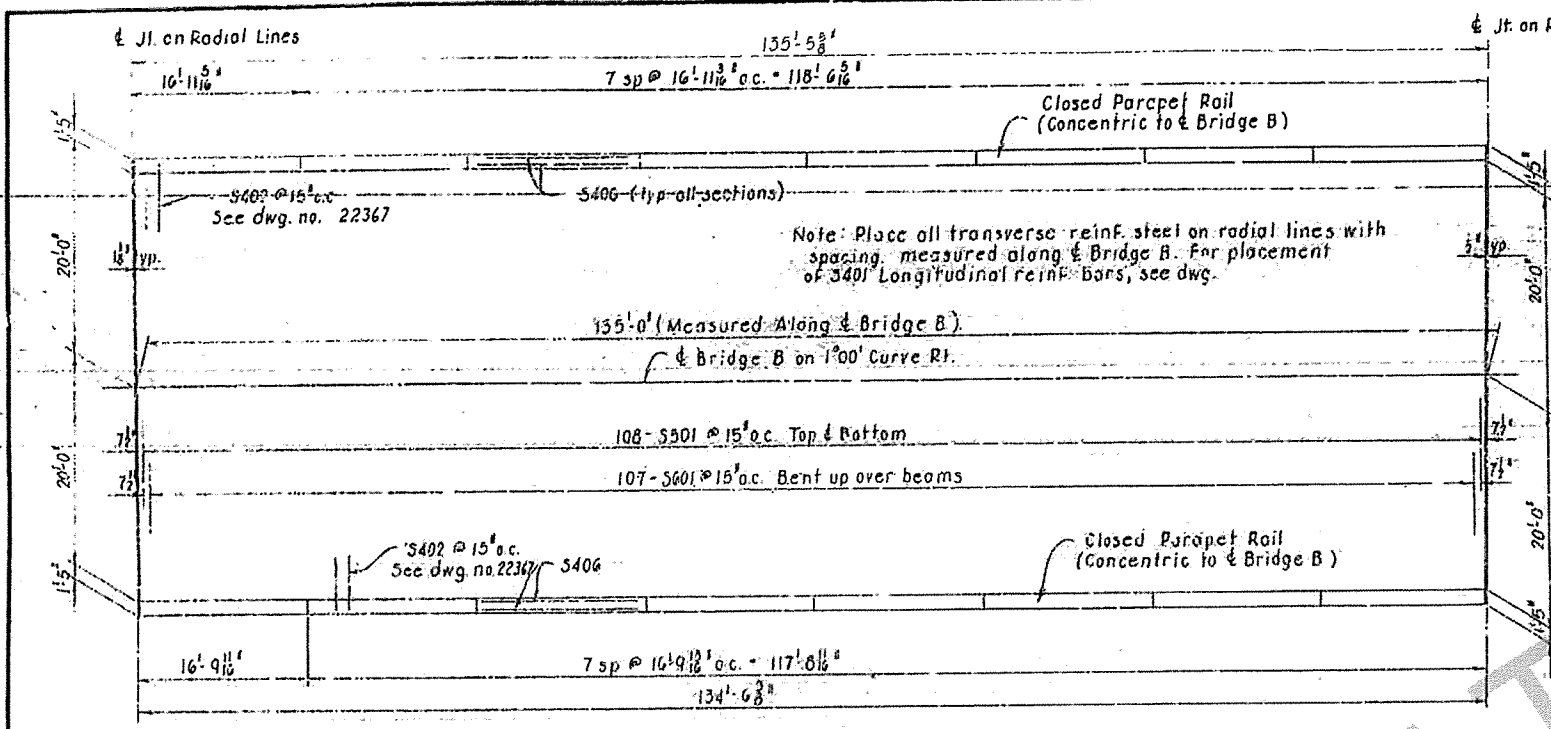 ℄ Jt. on Radial Lines
℄ Jt. on R
135'-5 5/8"
16'-11 5/16"
7 sp @ 16'-11 3/16" o.c. = 118'-6 5/16"
Closed Parapet Rail
(Concentric to ℄ Bridge B)
1'-5"
1'-5"
S402 @ 15" o.c.
See dwg. no. 22367
S406 (typ. all sections)
Note: Place all transverse reinf. steel on radial lines with
spacing measured along ℄ Bridge B. For placement
of S401 Longitudinal reinf. bars, see dwg.
20'-0"
typ.
typ.
20'-0"
135'-0" (Measured Along ℄ Bridge B)
℄ Bridge B on 1°00' Curve Rt.
7 1/2"
108-S501 @ 15" o.c. Top & Bottom
7 1/2"
20'-0"
7 1/2"
107-S601 @ 15" o.c. Bent up over beams
7 1/2"
20'-0"
S402 @ 15" o.c.
See dwg. no. 22367
S406
Closed Parapet Rail
(Concentric to ℄ Bridge B)
1'-5"
1'-5"
16'-9 11/16"
7 sp @ 16'-9 13/16" o.c. = 117'-8 11/16"
134'-6 3/8"